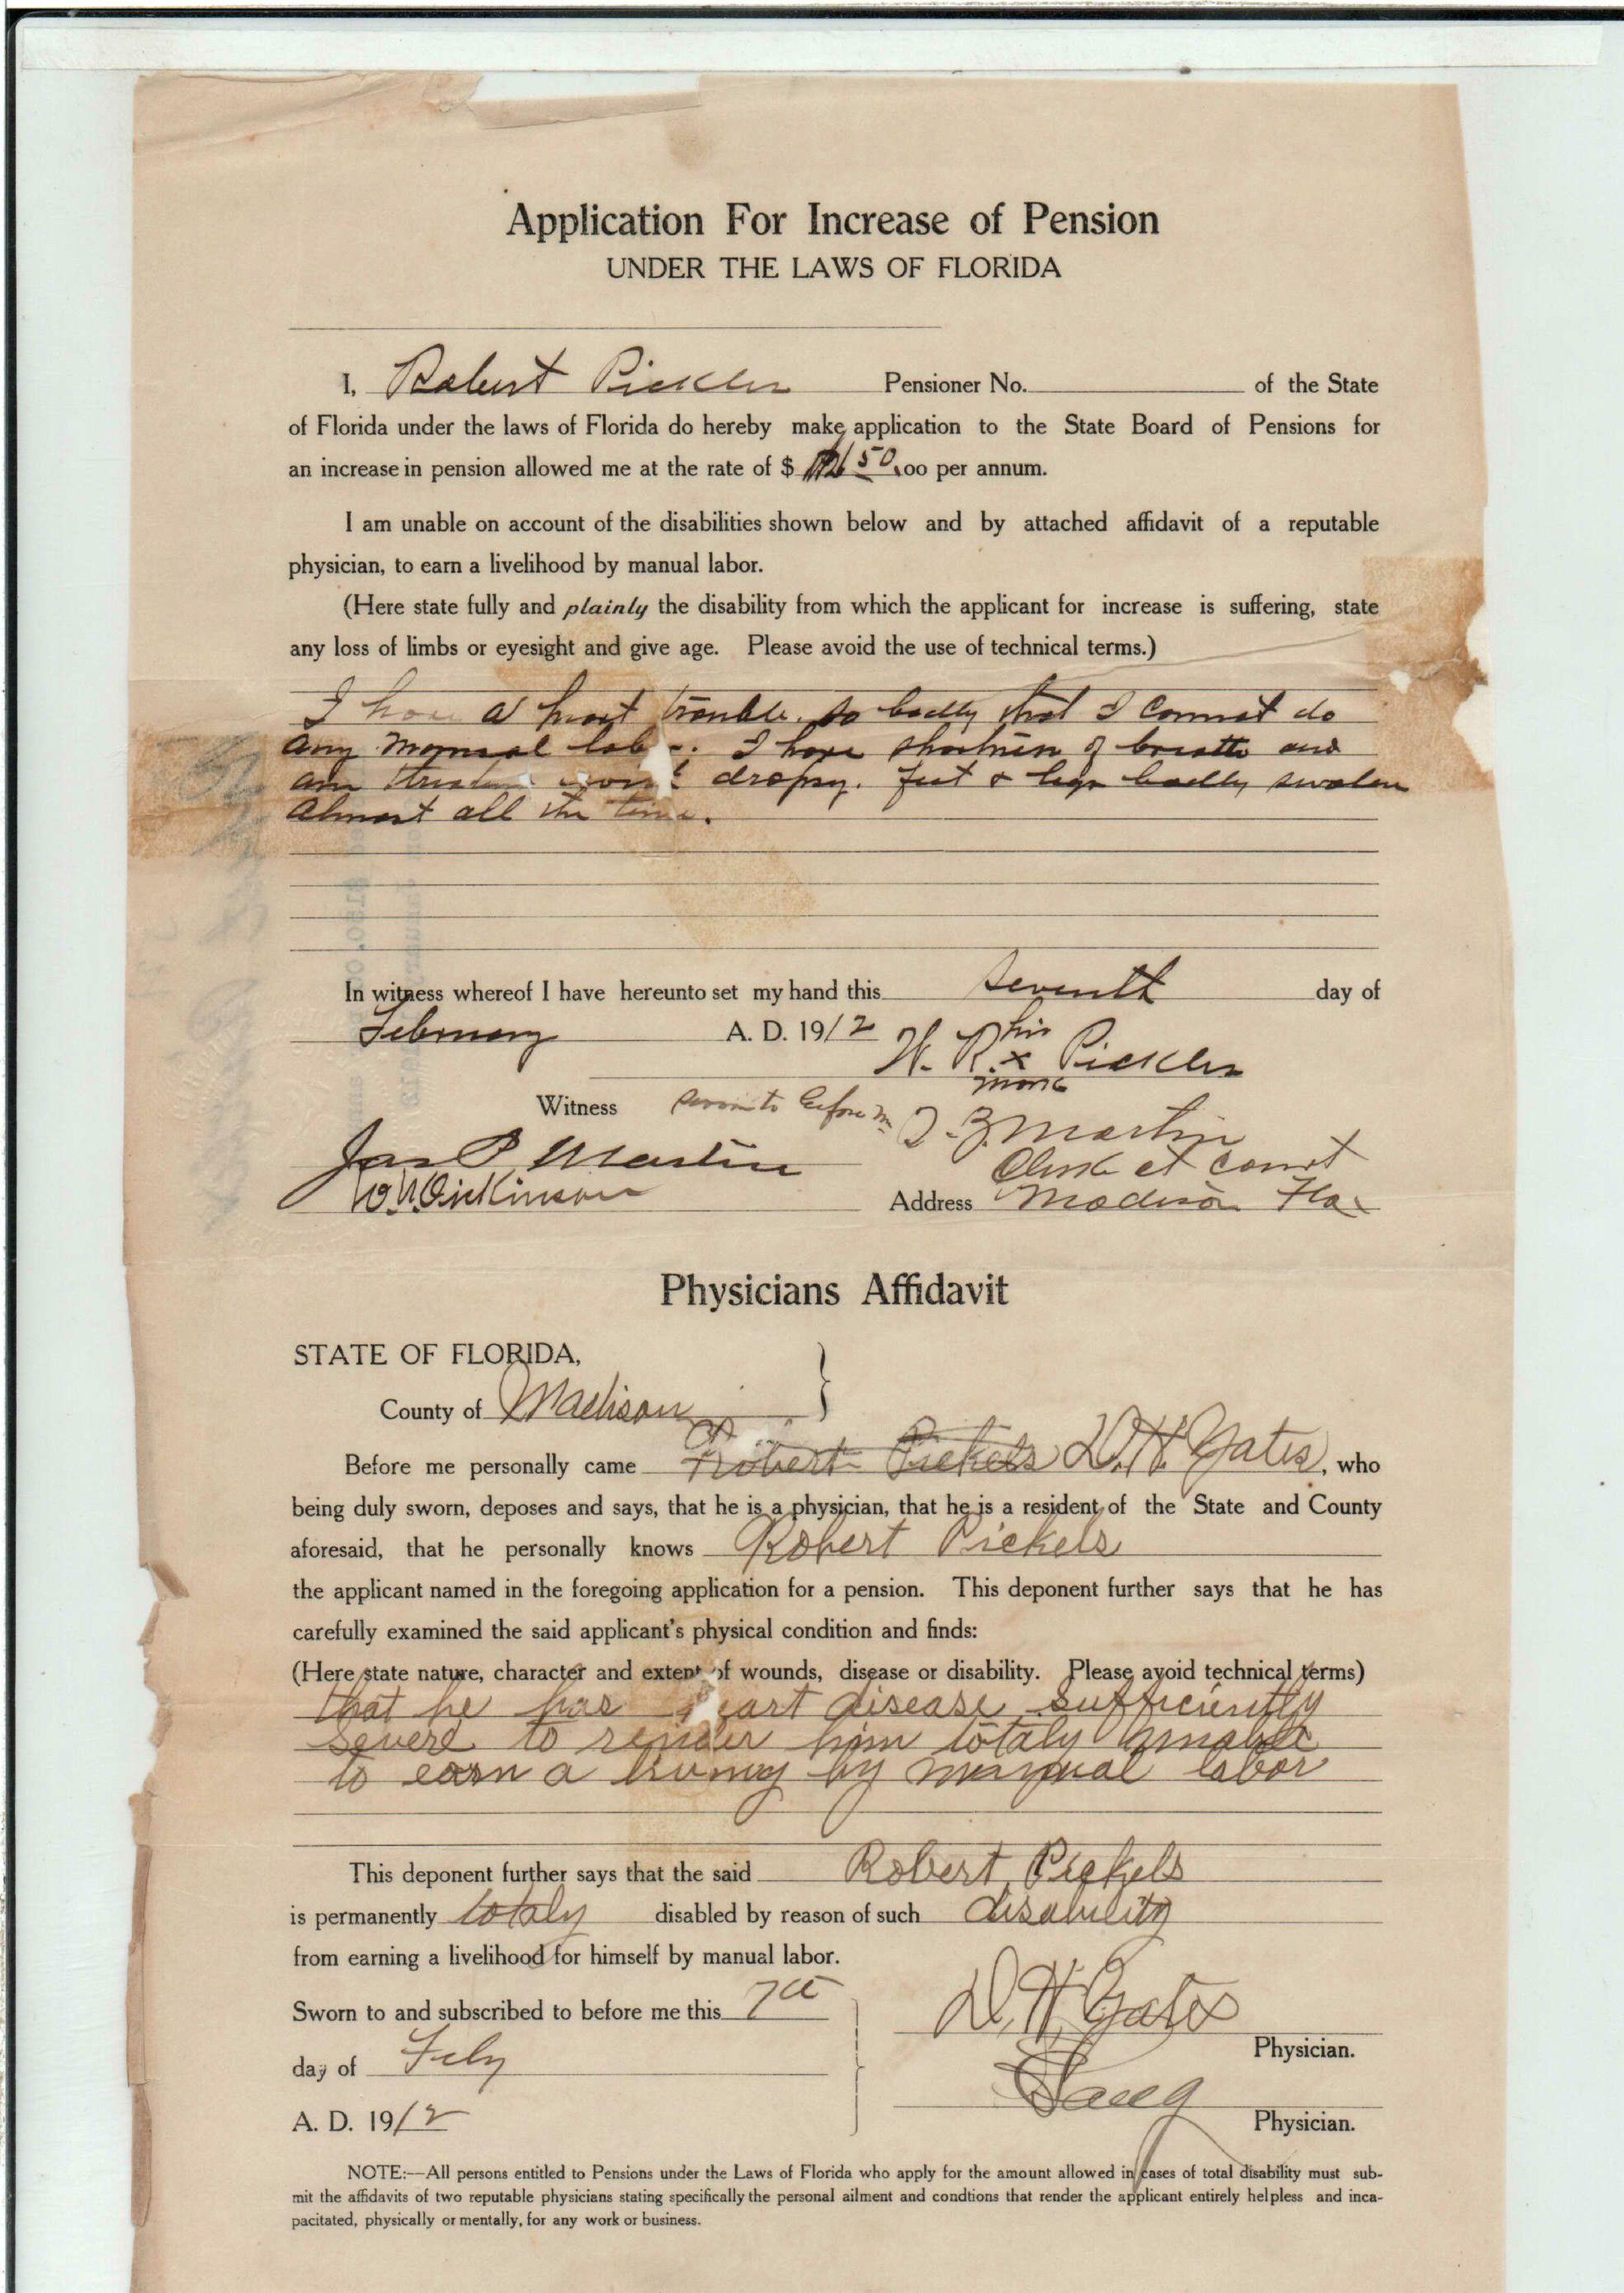 Application For Increase of Pension
UNDER THE LAWS OF FLORIDA
I, Robert Pickles Pensioner No. of the State
of Florida under the laws of Florida do hereby make application to the State Board of Pensions for
an increase in pension allowed me at the rate of $ 150.00 per annum.
I am unable on account of the disabilities shown below and by attached affidavit of a reputable
physician, to earn a livelihood by manual labor.
(Here state fully and plainly the disability from which the applicant for increase is suffering, state
any loss of limbs or eyesight and give age. Please avoid the use of technical terms.)
I have a heart trouble, so badly that I cannot do
any manual lab . I have shortness of breath and
am dropsy. feet & legs badly swolen
almost all the time.
In witness whereof I have hereunto set my hand this seventh day of
February A. D. 1912 his
W. R. x Pickles
mark
Witness sworn to before me T. Z. Martin
Jas P Martin Clerk ct court
W Dickinson Address Madison Fla
Physicians Affidavit
STATE OF FLORIDA,
County of Madison
Before me personally came Robert Pickels D. H. Yates, who
being duly sworn, deposes and says, that he is a physician, that he is a resident of the State and County
aforesaid, that he personally knows Robert Pickels
the applicant named in the foregoing application for a pension. This deponent further says that he has
carefully examined the said applicant's physical condition and finds:
(Here state nature, character and extent of wounds, disease or disability. Please avoid technical terms)
that he has heart disease sufficiently
severe to render him totaly unable
to earn a living by manual labor
This deponent further says that the said Robert Pickels
is permanently totaly disabled by reason of such disability
from earning a livelihood for himself by manual labor.
Sworn to and subscribed to before me this 7th D. H. Yates
Physician.
day of Feby
A. D. 1912 Physician.
NOTE:—All persons entitled to Pensions under the Laws of Florida who apply for the amount allowed in cases of total disability must sub-
mit the affidavits of two reputable physicians stating specifically the personal ailment and condtions that render the applicant entirely helpless and inca-
pacitated, physically or mentally, for any work or business.